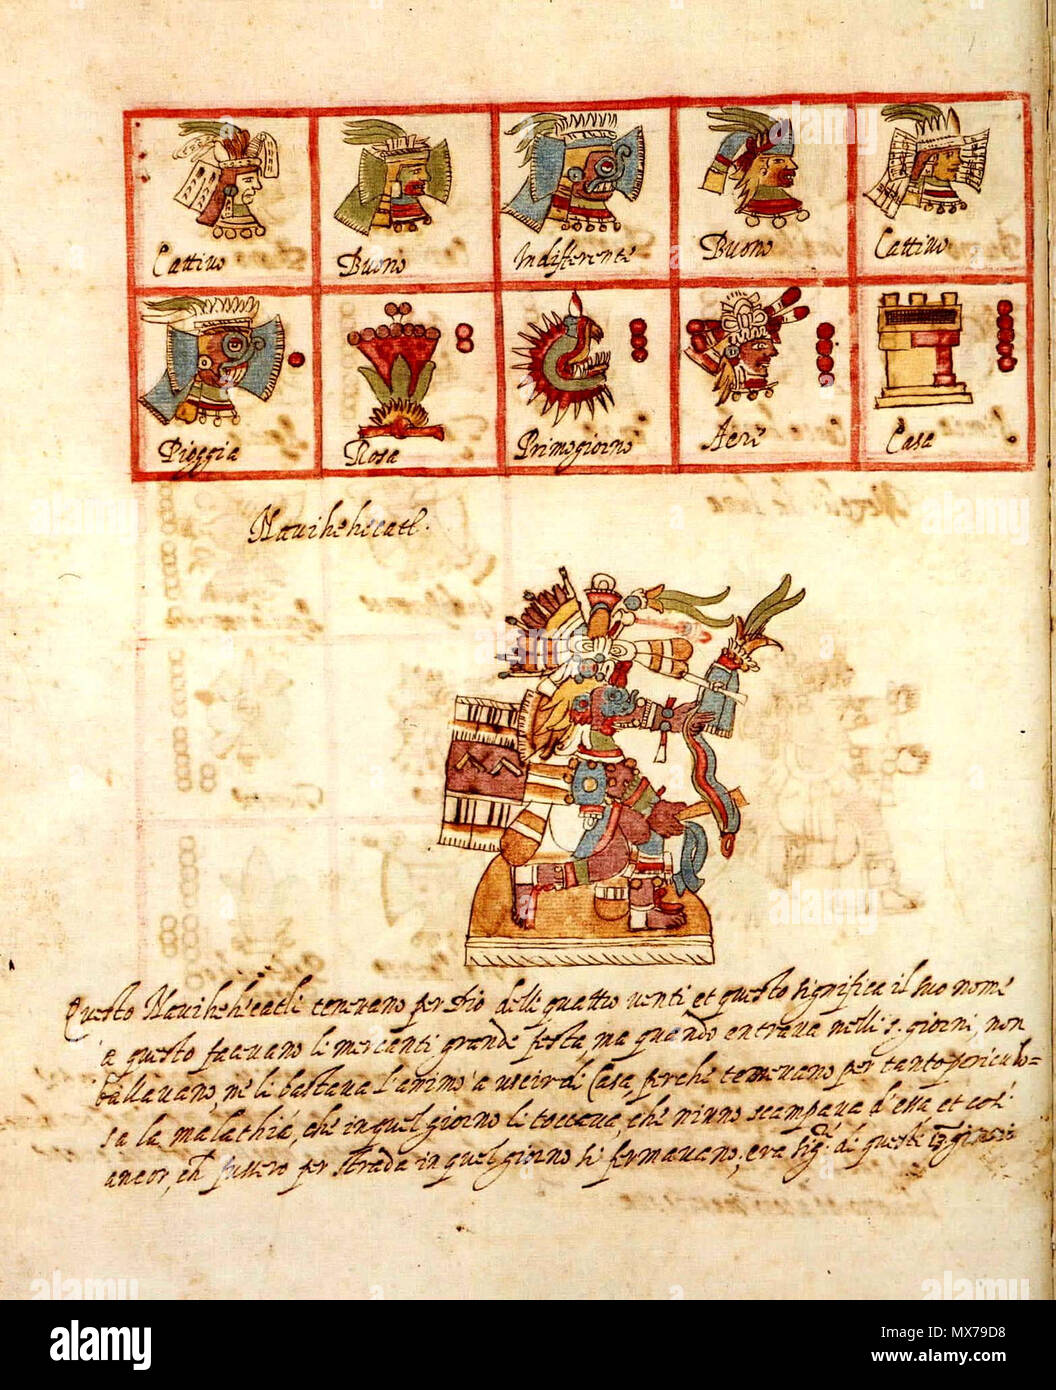 Cattivo Buono Indifferente Buono Cattivo
Pioggia Rosa Primogiorno Aere Casa
Navihehecatl.
Questo Navihehecatle tenevano per Dio delli quattro venti et questo significa il suo nome
a questo facevano li mercanti grande festa, ma quando entrava nelli s. giorni, non
ballavano, ne li bastava l'animo a uscir di Casa, perche temevano per tanto periculo=
sa la malathia, che in quel giorno li toccava, che niuno scampava d'essa et cosi
ancor, ch fussero per strada in quel giorno si fermavano, era sigr. di questi 13. giorni
alamy
Image ID: MX79D8
www.alamy.com